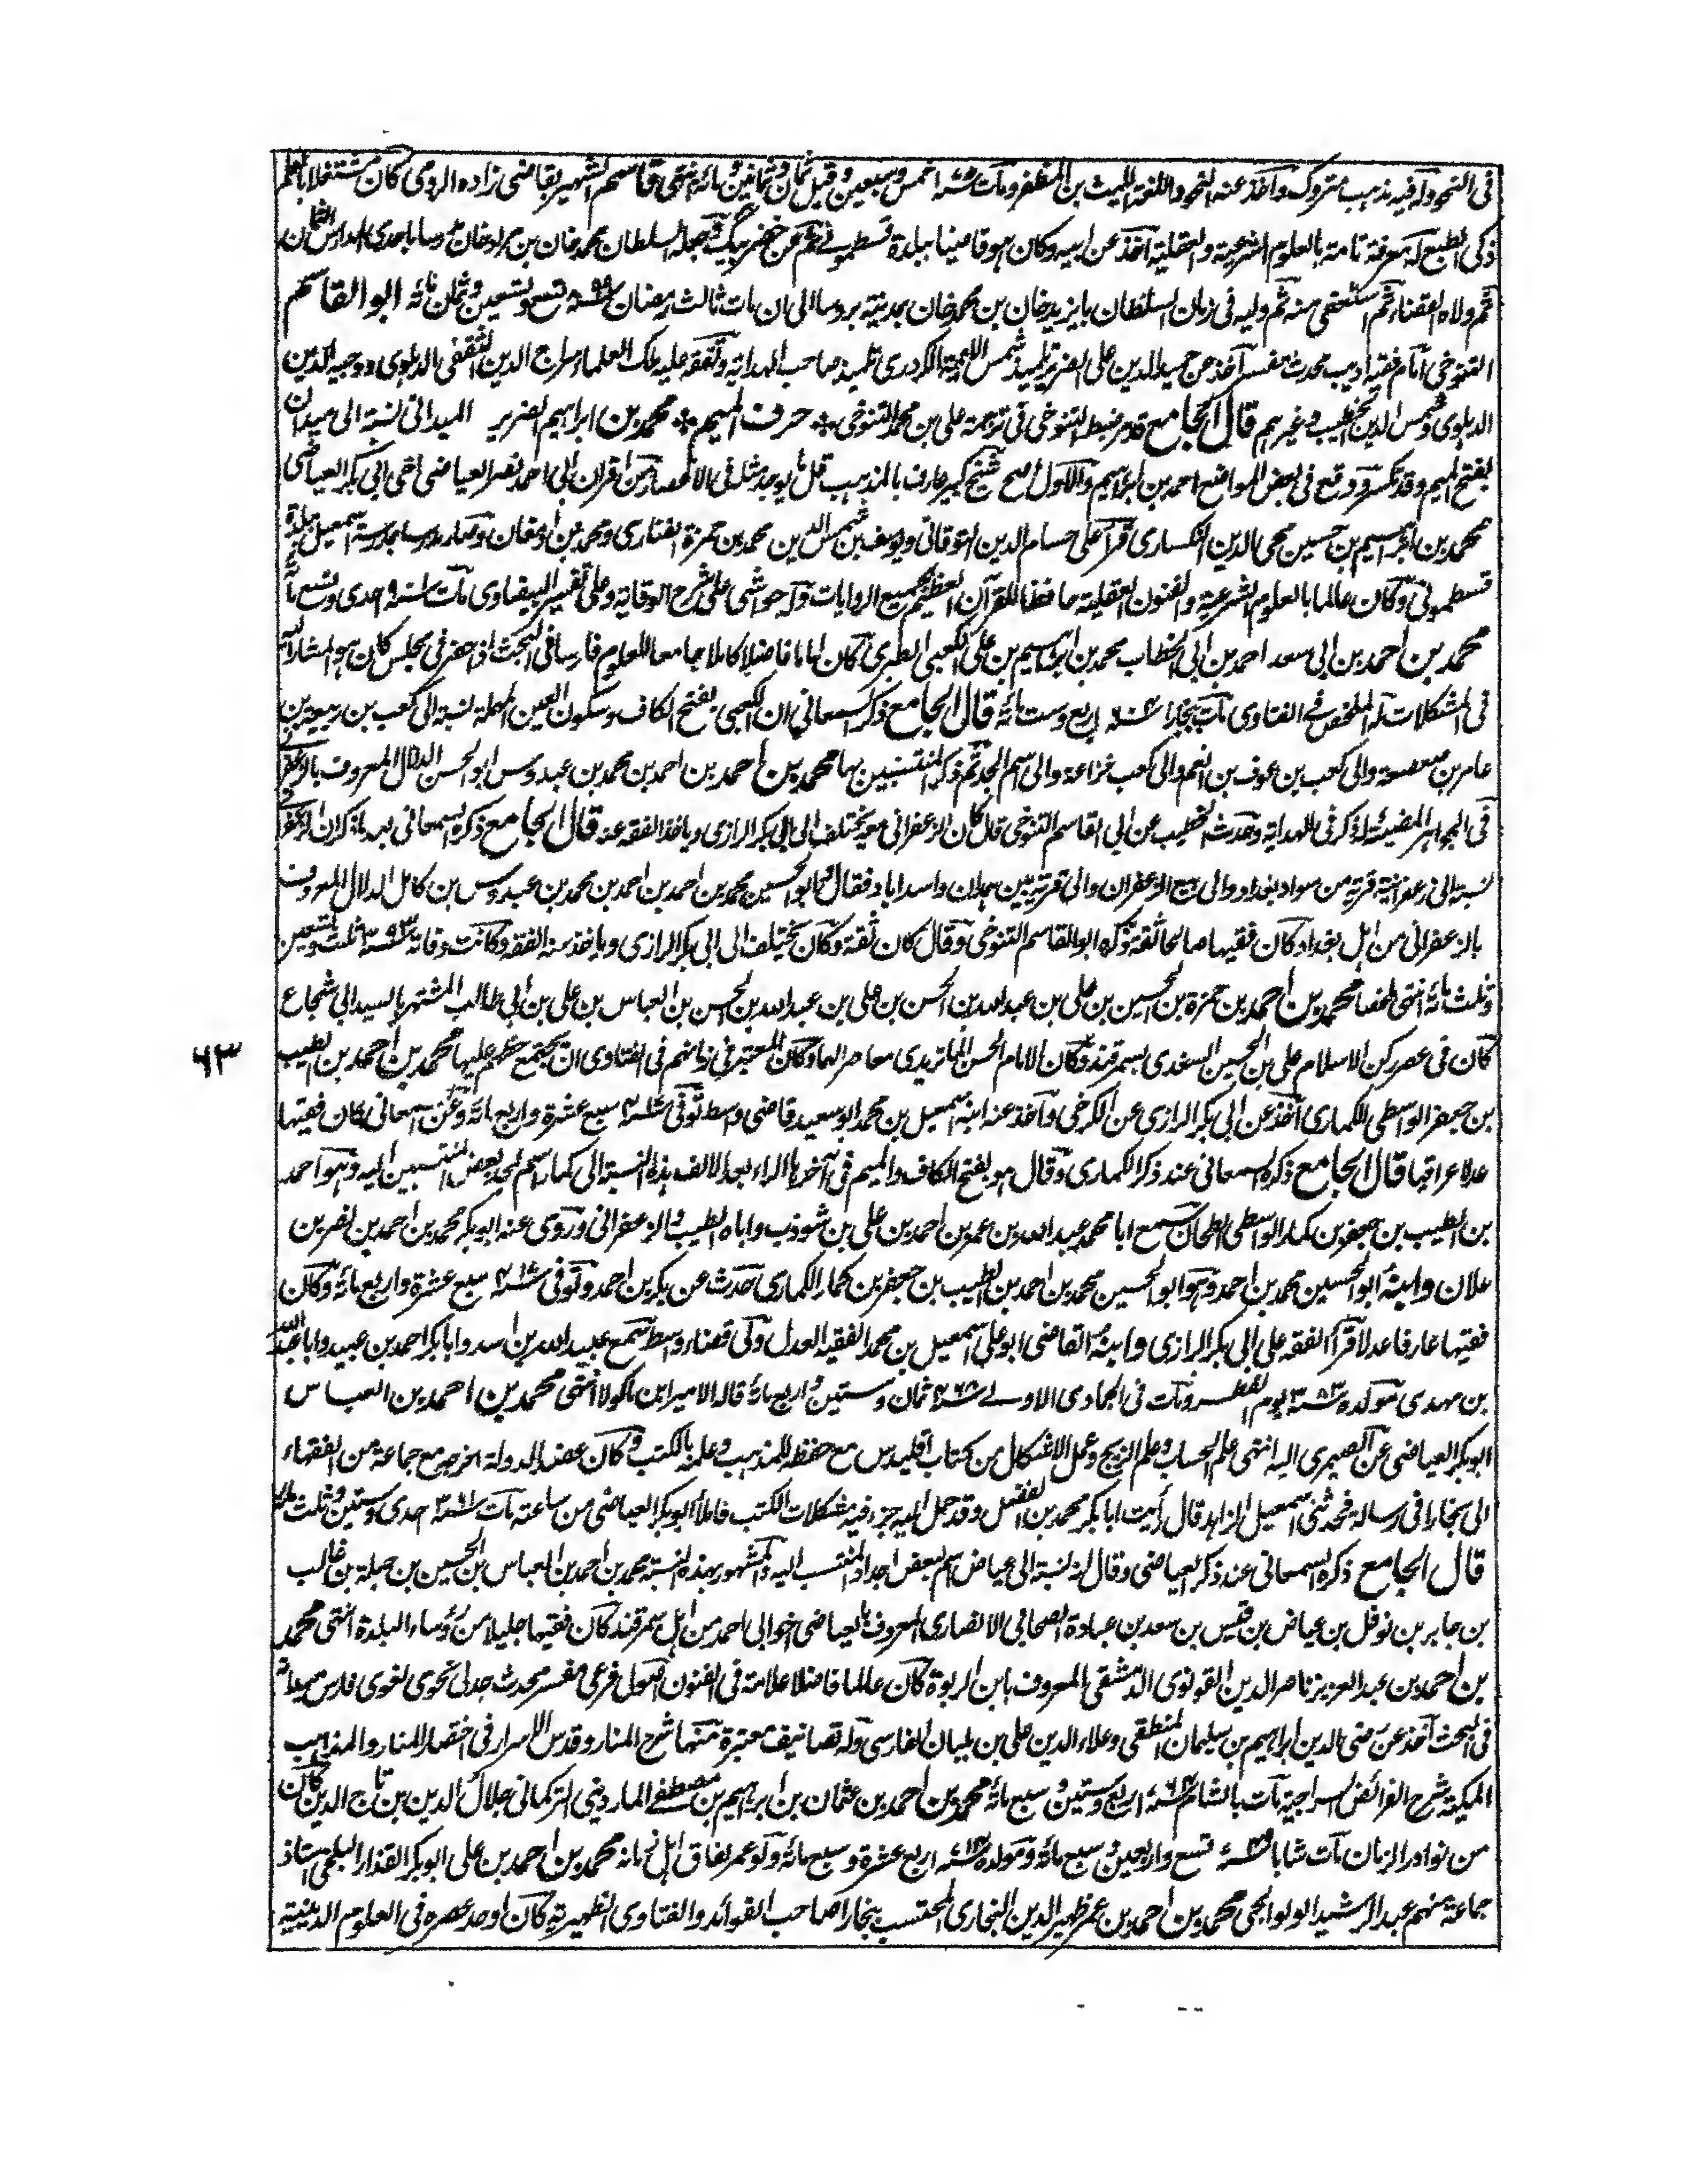 فى النحو وله فيه مذهب متروك واخذ عنه النحو واللغة الليث بن المظفر ومات سنة ١٧٥ خمس وسبعين وقيل ثمان وثمانين ومائة انتهى قاسم الشهير بقاضى زاده الرومى كان مشتغلا بالعلم
ذكى الطبع له معرفة تامة بالعلوم الشرعية والعقلية اخذ عن ابيه وكان هو قاضيا ببلدة قسطمونى ثم عن خضر بيك ثم جعله السلطان محمد خان بن مراد خان مدرسا باحدى المدارس الثمان
ثم ولاه القضاء ثم استعفى منه ثم وليه فى زمان السلطان بايزيد خان بن محمد خان بمدينة بروسا الى ان مات ثالث رمضان سنة ٨٩٩ تسع وتسعين وثمان مائة ابو القاسم
التنوخى امام فقيه اديب محدث مفسر اخذ عن حميد الدين على الضرير تلميذ شمس الائمة الكردرى تلميذ صاحب الهداية وتفقه عليه ملك العلماء سراج الدين الثقفى الدهلوى ووجيه الدين
الدهلوى وشمس الدين الخطيب وغيرهم قال الجامع قد مر ضبط التنوخى فى ترجمة على بن محمد التنوخى * حرف الميم * محمد بن ابراهيم الضرير الميدانى نسبة الى ميدان
بفتح الميم وقد تكسر ووقع فى بعض المواضع احمد بن ابراهيم والاول اصح شيخ كبير عارف بالمذهب قل ما يوجد مثله فى الاعصار من اقران ابى احمد نصر العياضى اخى ابى بكر العياضى
محمد بن ابراهيم بن حسين محى الدين النكسارى قرأ على حسام الدين التوقاتى ويوسف بن شمس الدين محمد بن حمزة الفنارى ومحمد بن ارمغان وصار مدرسا بمدرسة اسمعيل ببلدة
قسطمونى وكان عالما بالعلوم الشرعية والفنون العقلية حافظا للقرآن العظيم بجميع الروايات وله حواشى على شرح الوقاية وعلى تفسير البيضاوى مات سنة ٩٠١ احدى وتسع مائة
محمد بن احمد بن ابى سعد احمد بن ابى الخطاب محمد بن ابراهيم بن على الكعبى الطبرى كان اماما فاضلا كاملا جامعا للعلوم فارسا فى البحث اذا حضر فى مجلس كان هو المشار اليه
فى المشكلات له الملخص فى الفتاوى مات ببخارا سنة ٦٠٤ اربع وست مائة قال الجامع ذكر السمعانى ان الكعبى بفتح الكاف وسكون العين المهملة نسبة الى كعب بن ربيعة بن
عامر بن صعصعة والى كعب بن عوف بن انعم والى كعب خزاعة والى اسم الجد ثم ذكر المنتسبين بها محمد بن احمد بن احمد بن محمد بن عبدوس ابو الحسن الدلال المعروف بالزعفرانى
فى الجواهر المضيئة له ذكر فى الهداية وحدث الخطيب عن ابى القاسم التنوخى قال كان الزعفرانى معه يختلف الى ابى بكر الرازى وياخذ الفقه عنه قال الجامع ذكره السمعانى بعد ما ذكر ان الزعفرانى
نسبة الى زعفرانية قرية من سواد بغداد والى بيع الزعفران والى قرية بين همدان واسداباد فقال ابو الحسين محمد بن احمد بن احمد بن محمد بن عبدوس بن كامل الدلال المعروف
بالزعفرانى من اهل بغداد وكان فقيها صالحا ثقة ذكره ابو القاسم التنوخى وقال كان ثقة وكان يختلف الى ابى بكر الرازى وياخذ منه الفقه وكانت وفاته سنة ٣٩٣ ثلث وتسعين
وثلث مائة انتهى ملخصا محمد بن احمد بن حمزة بن الحسين بن على بن عبد الله بن الحسن بن على بن عبد الله بن الحسن بن العباس بن على بن ابى طالب المشتهر بالسيد ابى شجاع
كان فى عصر ركن الاسلام على بن الحسين السغدى بسمرقند وكان الامام الحسن الماتريدى معاصرا لهما وكان المعتبر فى زمانهم فى الفتاوى ان يجتمع خطهم عليها محمد بن احمد بن الطيب
بن جعفر الواسطى الكمارى اخذ عن ابى بكر الرازى عن الكرخى واخذ عنه ابنه اسمعيل بن محمد ابو سعيد قاضى واسط توفى سنة ٤١٧ سبع عشرة واربع مائة وعن السمعانى كان فقيها
عدلا عراقيا قال الجامع ذكره السمعانى عند ذكر الكمارى وقال هو بفتح الكاف والميم فى آخرها الراء بعد الالف هذه النسبة الى كمار اسم لجد بعض المنتسبين اليه وهو احمد
بن الطيب بن جعفر بن كمار الواسطى الطحان سمع ابا محمد عبد الله بن عمر بن احمد بن على بن شوذب واباه الطيب والزعفرانى وروى عنه ابو بكر محمد بن احمد بن نصر بن
علان وابنه ابو الحسين محمد بن احمد وهو ابو الحسين محمد بن احمد بن الطيب بن جعفر بن كمار الكمارى حدث عن بكر بن احمد وتوفى سنة ٤١٧ سبع عشرة واربع مائة وكان
فقيها عارفا عدلا قرأ الفقه على ابى بكر الرازى وابنه القاضى ابو على اسمعيل بن محمد الفقيه العدل ولى قضاء واسط سمع عبيد الله بن اسد وابا بكر احمد بن عبيد وابا عبد الله
بن مهدى مولده سنة ٣٨٣ يوم الفطر ومات فى الجمادى الاولى سنة ٤٦٨ ثمان وستين واربع مائة قاله الامير ابن ماكولا انتهى محمد بن احمد بن العباس
ابو بكر العياضى عن الصيمرى اليه انتهى علم الحساب وعلم الزيج وعمل الاشكال من كتاب اقليدس مع حفظه للمذهب وعلمه بالكتب كان عضد الدولة اخرجه مع جماعة من الفقهاء
الى بخارا فى رسالة فحدثنى اسمعيل الزاهد قال رأيت ابا بكر محمد بن الفضل وقد حمل اليه جزء فيه مشكلات الكتب فاملأ ابو بكر العياضى من ساعته مات سنة ٣٦١ احدى وستين وثلث مائة
قال الجامع ذكره السمعانى عند ذكر العياضى وقال انه نسبة الى عياض اسم لبعض اجداد المنتسب اليه والمشهور بهذه النسبة محمد بن احمد بن العباس بن الحسين بن جبلة بن غالب
بن جابر بن نوفل بن عياض بن قيس بن سعد بن عبادة الصحابى الانصارى المعروف بالعياضى اخو ابى احمد من اهل سمرقند كان فقيها جليلا من رؤساء البلدة انتهى محمد
بن احمد بن عبد العزيز ناصر الدين القونوى الدمشقى المعروف بابن الربوة كان عالما فاضلا علامة فى الفنون اصولى فرعى مفسر محدث جدلى نحوى لغوى فارس ميدانه
فى البحث اخذ عن رضى الدين ابراهيم بن سليمان المنطقى وعلاء الدين على بن بلبان الفارسى وله تصانيف معتبرة منها شرح المنار وقدس الاسرار فى اختصار المنار والمذاهب
المكية شرح الفرائض السراجية مات بالشام سنة ٧٦٤ اربع وستين وسبع مائة محمد بن احمد بن عثمان بن ابراهيم بن مصطفى الماردينى التركمانى جلال الدين بن تاج الدين كان
من نوادر الزمان مات شابا سنة ٧٤٩ تسع واربعين وسبع مائة ومولده سنة ٧١٤ اربع عشرة وسبع مائة ولو عمر لفاق اهل زمانه محمد بن احمد بن على ابو بكر القذار البلخى استاذ
جماعة منهم عبد الرشيد الولوالجى محمد بن احمد بن عمر ظهير الدين البخارى المحتسب ببخارا صاحب الفوائد والفتاوى الظهيرية كان اوحد عصره فى العلوم الدينية
٦٣